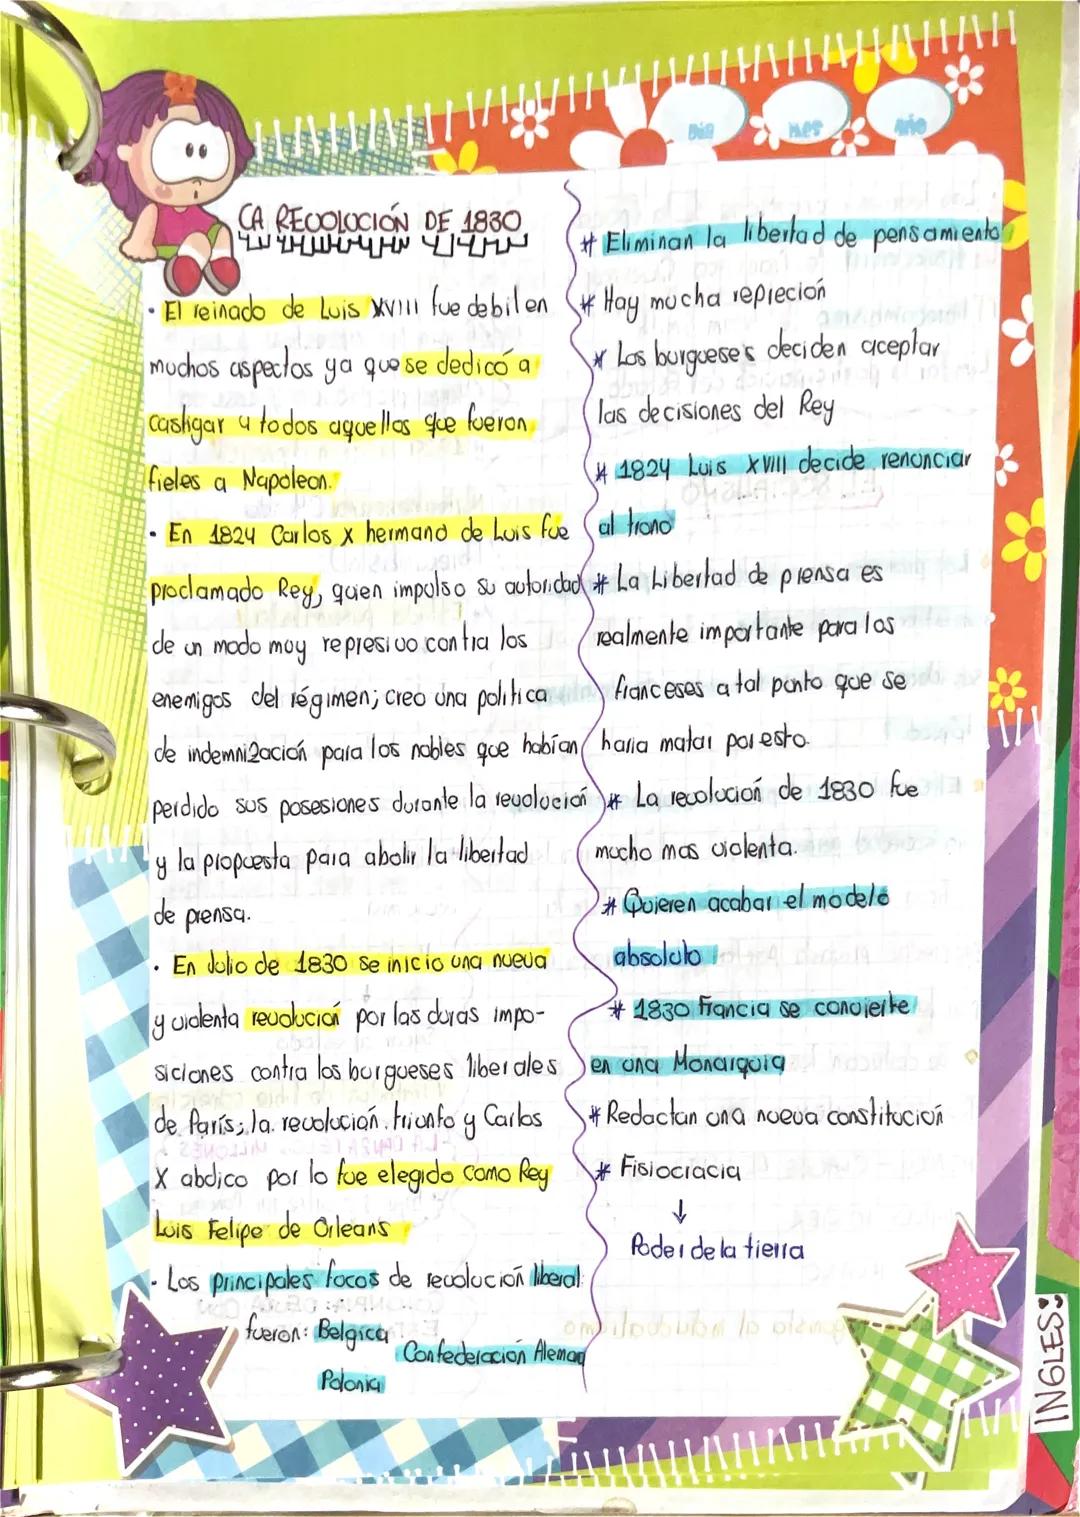 Día
Mes
Año
LA REVOLUCIÓN DE 1830
• El reinado de Luis XVIII fue debil en
muchos aspectos ya que se dedicó a
castigar a todos aquellos que fueron
fieles a Napoleon.
• En 1824 Carlos X hermano de Luis fue
proclamado Rey, quien impulso su autoridad
de un modo muy represivo contra los
enemigos del régimen; creo una politica
de indemnización para los nobles que habían
perdido sus posesiones durante la revolución
y la propuesta para abolir la libertad
de prensa.
• En Julio de 1830 se inicio una nueva
y violenta revolución por las duras impo-
siciones contra los burgueses liberales
de París; la revolución triunfo y Carlos
X abdico por lo fue elegido como Rey
Luis Felipe de Orleans
• Los principales focos de revolución liberal
fueron: Belgica
Confederación Aleman
Polonia
# Eliminan la libertad de pensamiento
# Hay mucha repreción
# Los burgueses deciden aceptar
las decisiones del Rey
# 1824 Luis XVIII decide renunciar
al trono
# La Libertad de prensa es
realmente importante para los
franceses a tal punto que se
haria matar por esto.
# La revolución de 1830 fue
mucho mas violenta.
# Quieren acabar el modelo
absoluto
# 1830 Francia se convierte
en una Monarquia
# Redactan una nueva constitución
# Fisiocracia
↓
Poder de la tierra
INGLES: